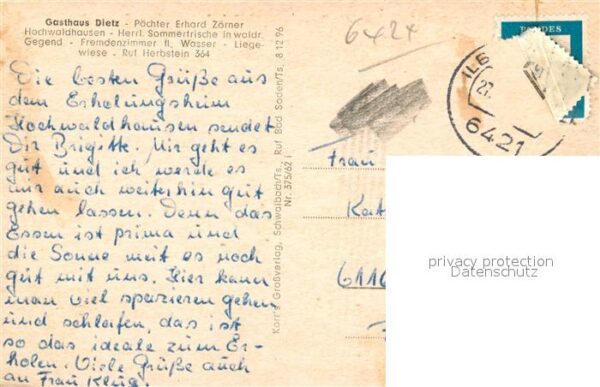 Gasthaus Dietz - Pächter Erhard Zörner
Hochwaldhausen - Herrl. Sommerfrische in waldr.
Gegend - Fremdenzimmer fl. Wasser - Liege-
wiese - Ruf Herbstein 364
6424
Die besten Grüße aus
dem Erholungsheim
Hochwaldhausen sendet
Dir Brigitte. Mir geht es
gut und ich werde es
mir auch weiterhin gut
gehen lassen. Denn das
Essen ist prima und
die Sonne meit es noch
gut mit uns. Hier kann
man viel spazieren gehen
und schlafen, das ist
so das ideale zum Er-
holen. Viele Grüße auch
an Frau Klug.
Korr's Großverlag, Schwalbach/Ts., Ruf Bad Soden/Ts. 8 12 96
Nr. 375/62 i
27.
6421
Frau
Kat
6110
privacy protection
Datenschutz